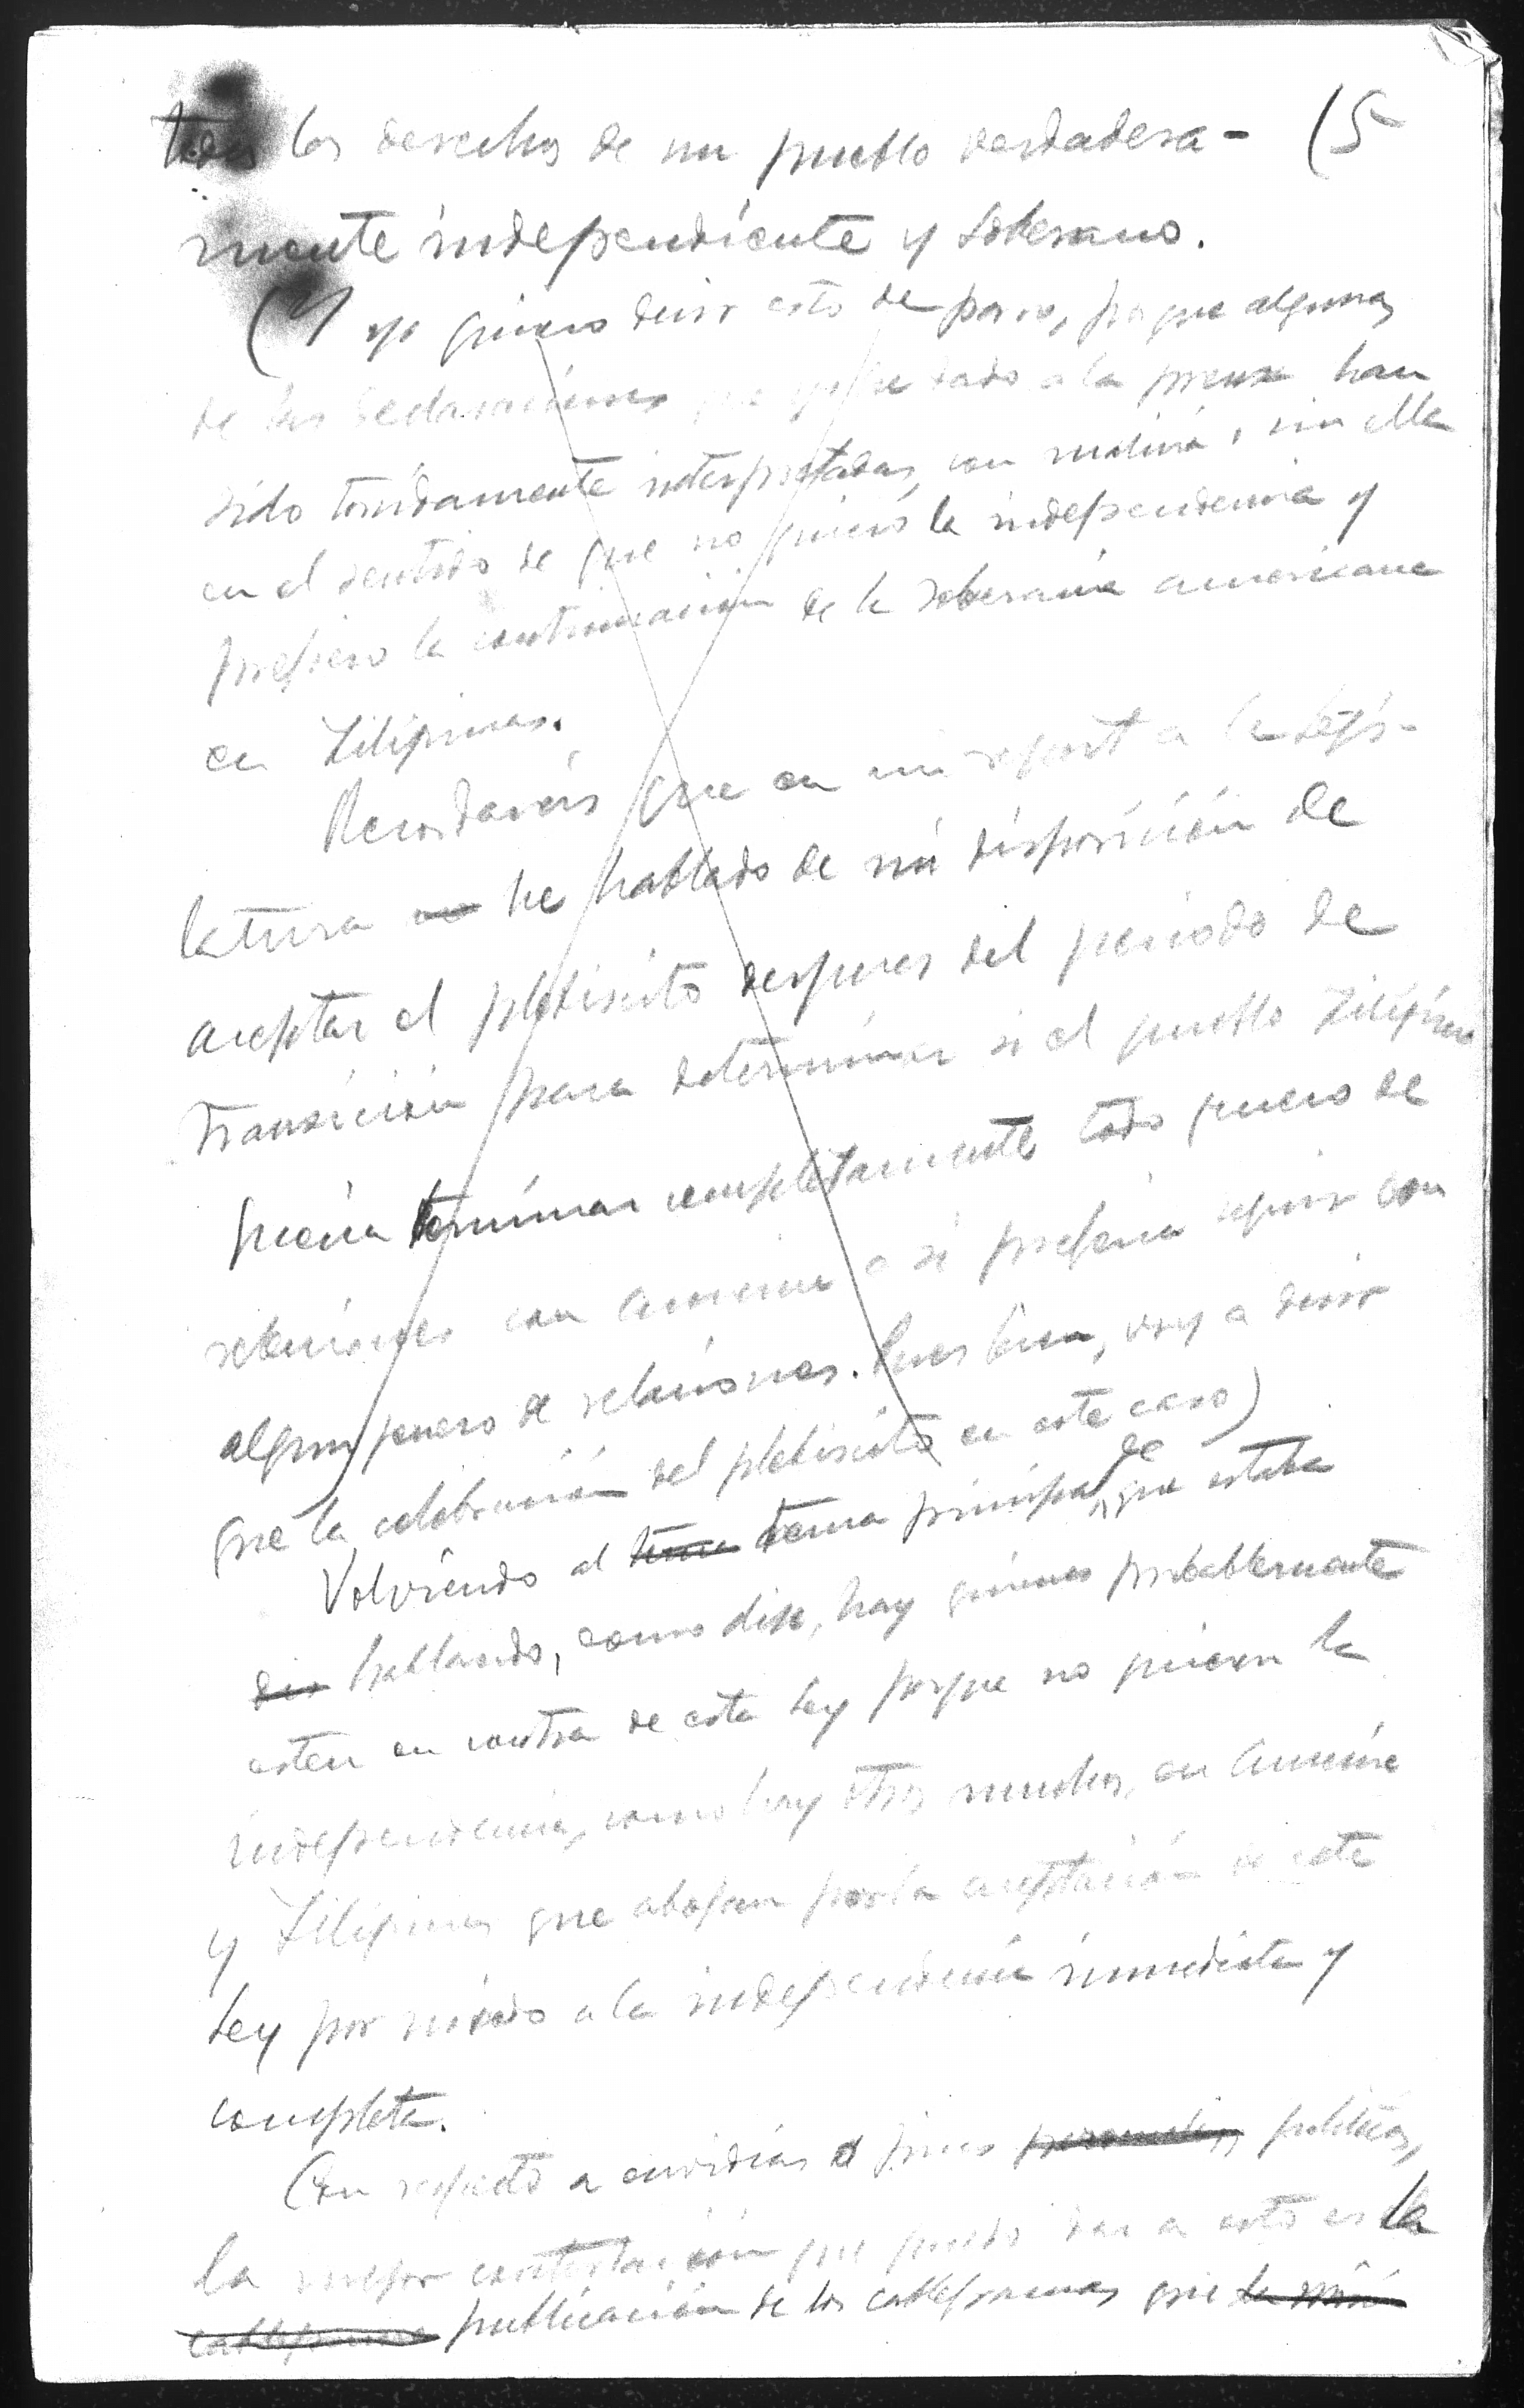 todos los derechos de un pueblo verdadera- (5
mente independiente y soberano.
(Y yo quiero decir esto de paso, porque algunas
de las declaraciones que yo he dado a la prensa han
sido torcidamente interpretadas, con malicia o sin ella
en el sentido de que no quiero la independencia y
prefiero la continuacion de la soberania americana
en Filipinas.
Recordareis que en mi report a la Legis-
latura no he hablado de mi disposición de
aceptar el plebiscito despues del periodo de
transicion para determinar si el pueblo Filipino
queria terminar completamente todo genero de
relaciones con America o si preferia seguir con
algun genero de relaciones. Pues bien, voy a decir
que la celebración del plebiscito en este caso)
Volviendo al tema tema principal de que estaba
dis hablando, como dije, hay quienes probablemente
esten en contra de esta Ley porque no quieren la
independencia, como hay otros muchos, en America
y Filipinas que abogan por la aceptación de este
Ley por miedo a la independencia inmediata y
completa.
Con respecto a envidias o fines personales politicos,
la mejor contestación que puedo dar a esto es la
cablegramas publicación de los cablegramas que